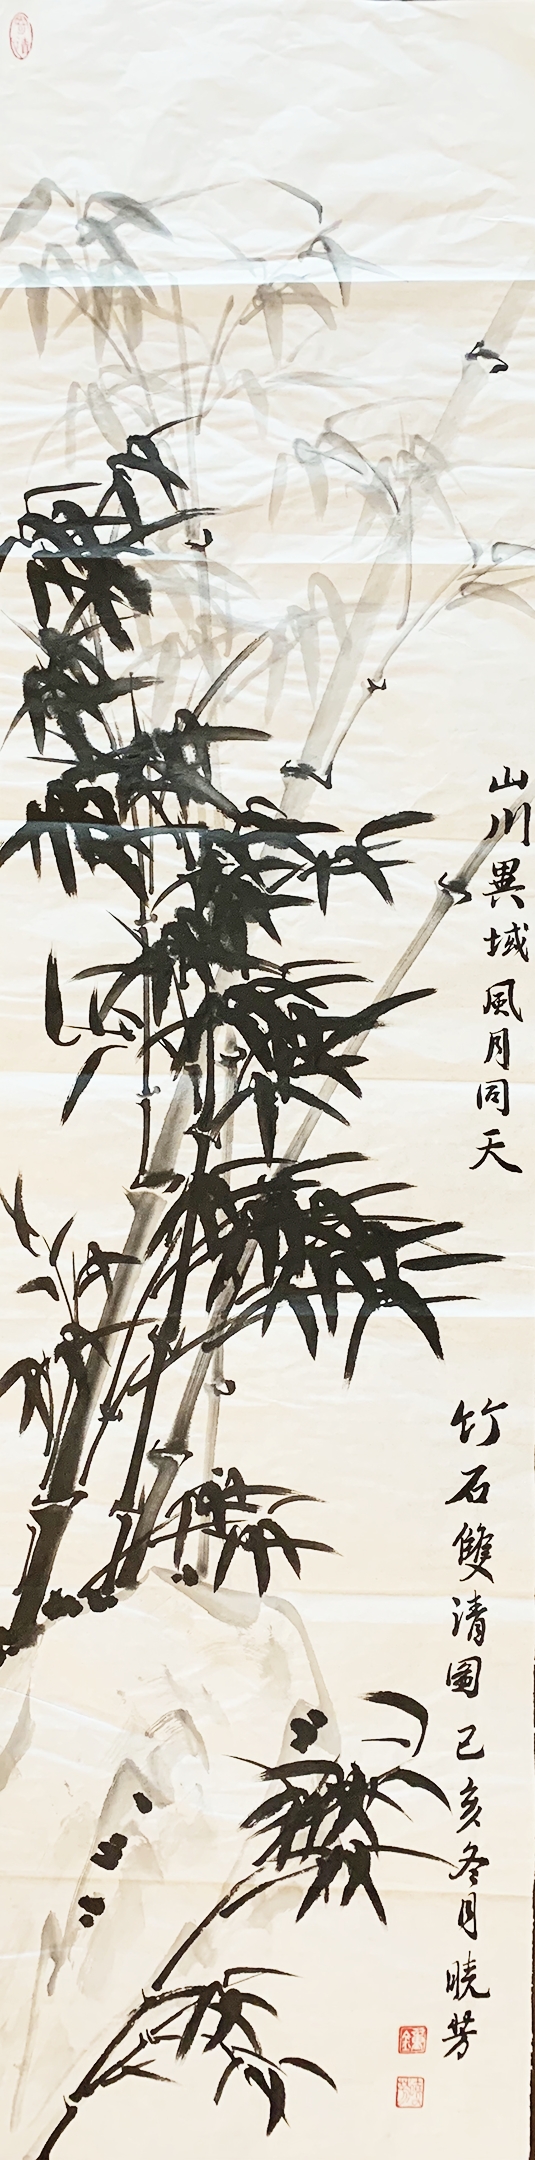 山川異域風月同天
竹石雙清圖己亥冬月曉芳